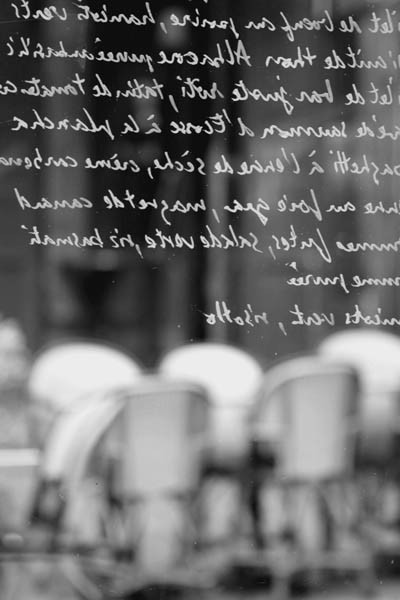 ilet de bœuf au poivre, haricots vert
i cuit de thon Albacore, purée au basili
ilet de bar juste rôti, tatin de tomates co
vé de saumon d'Ecosse à la plancha
paghetti à l'encre de sèche, crème carbona
au foie gras, magret de canard
omme frites, salade verte, riz basmati
omme purée
aricots vert, risotto